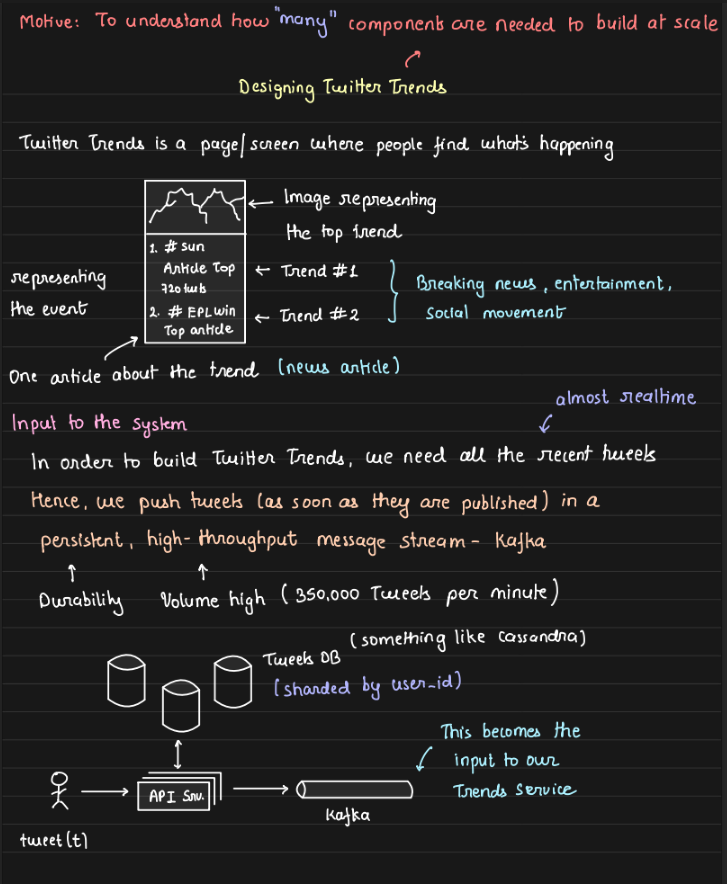 Motive: To understand how "many" components are needed to build at scale
Designing Twitter Trends
Twitter Trends is a page/screen where people find what's happening
Image representing
the top trend
1. # sun
Article Top
720 twts
← Trend #1
2. # EPL win
Top article
← Trend #2
Breaking news, entertainment,
social movement
representing
the event
One article about the trend (news article)
almost realtime
Input to the system
In order to build Twitter Trends, we need all the recent tweets
Hence, we push tweets (as soon as they are published) in a
persistent, high-throughput message stream - Kafka
Durability Volume high (350,000 Tweets per minute)
Tweets DB (something like Cassandra)
(sharded by user_id)
This becomes the
input to our
Trends Service
API Srv.
Kafka
tweet(t)